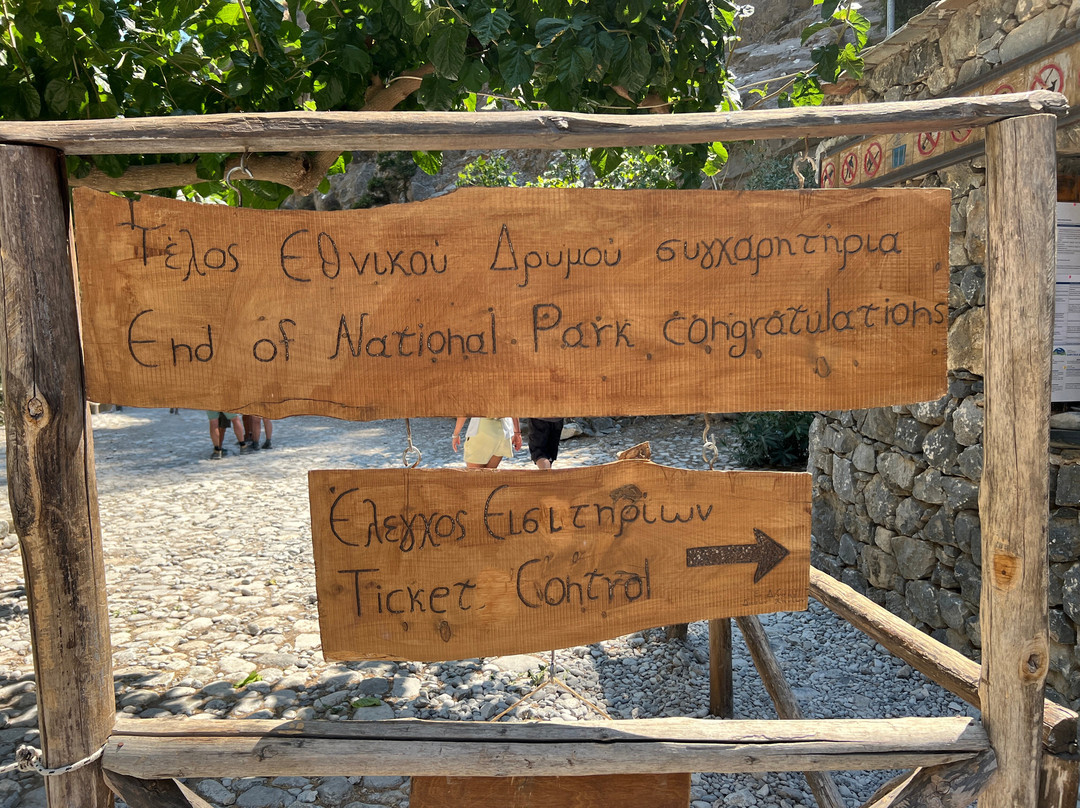 Τέλος Εθνικού Δρυμού συγχαρητήρια
End of National Park congratulations
Έλεγχος Εισιτηρίων
Ticket Control